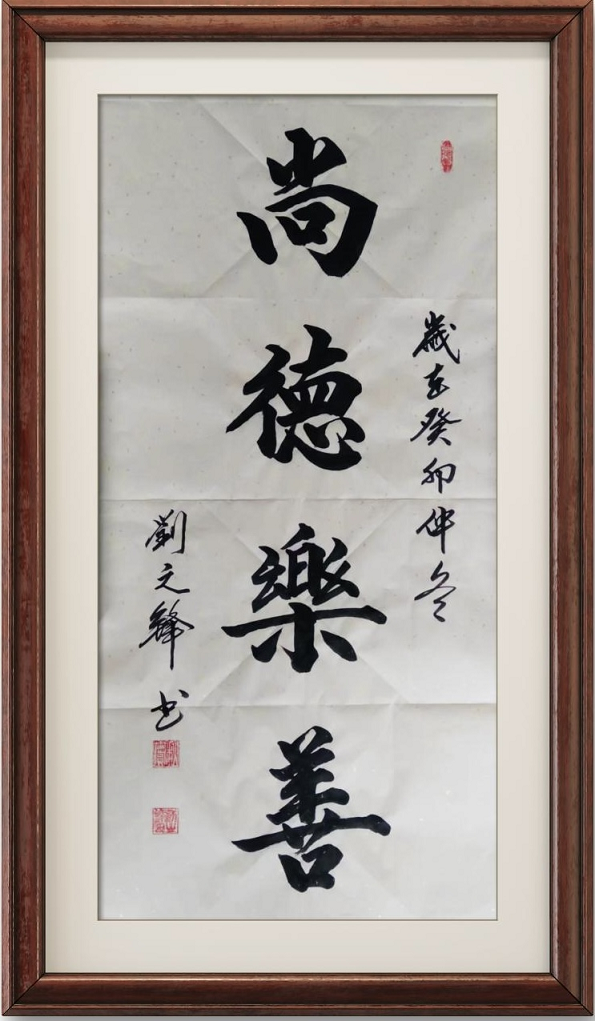 歲在癸卯仲冬
尚德樂善
劉文鋒书